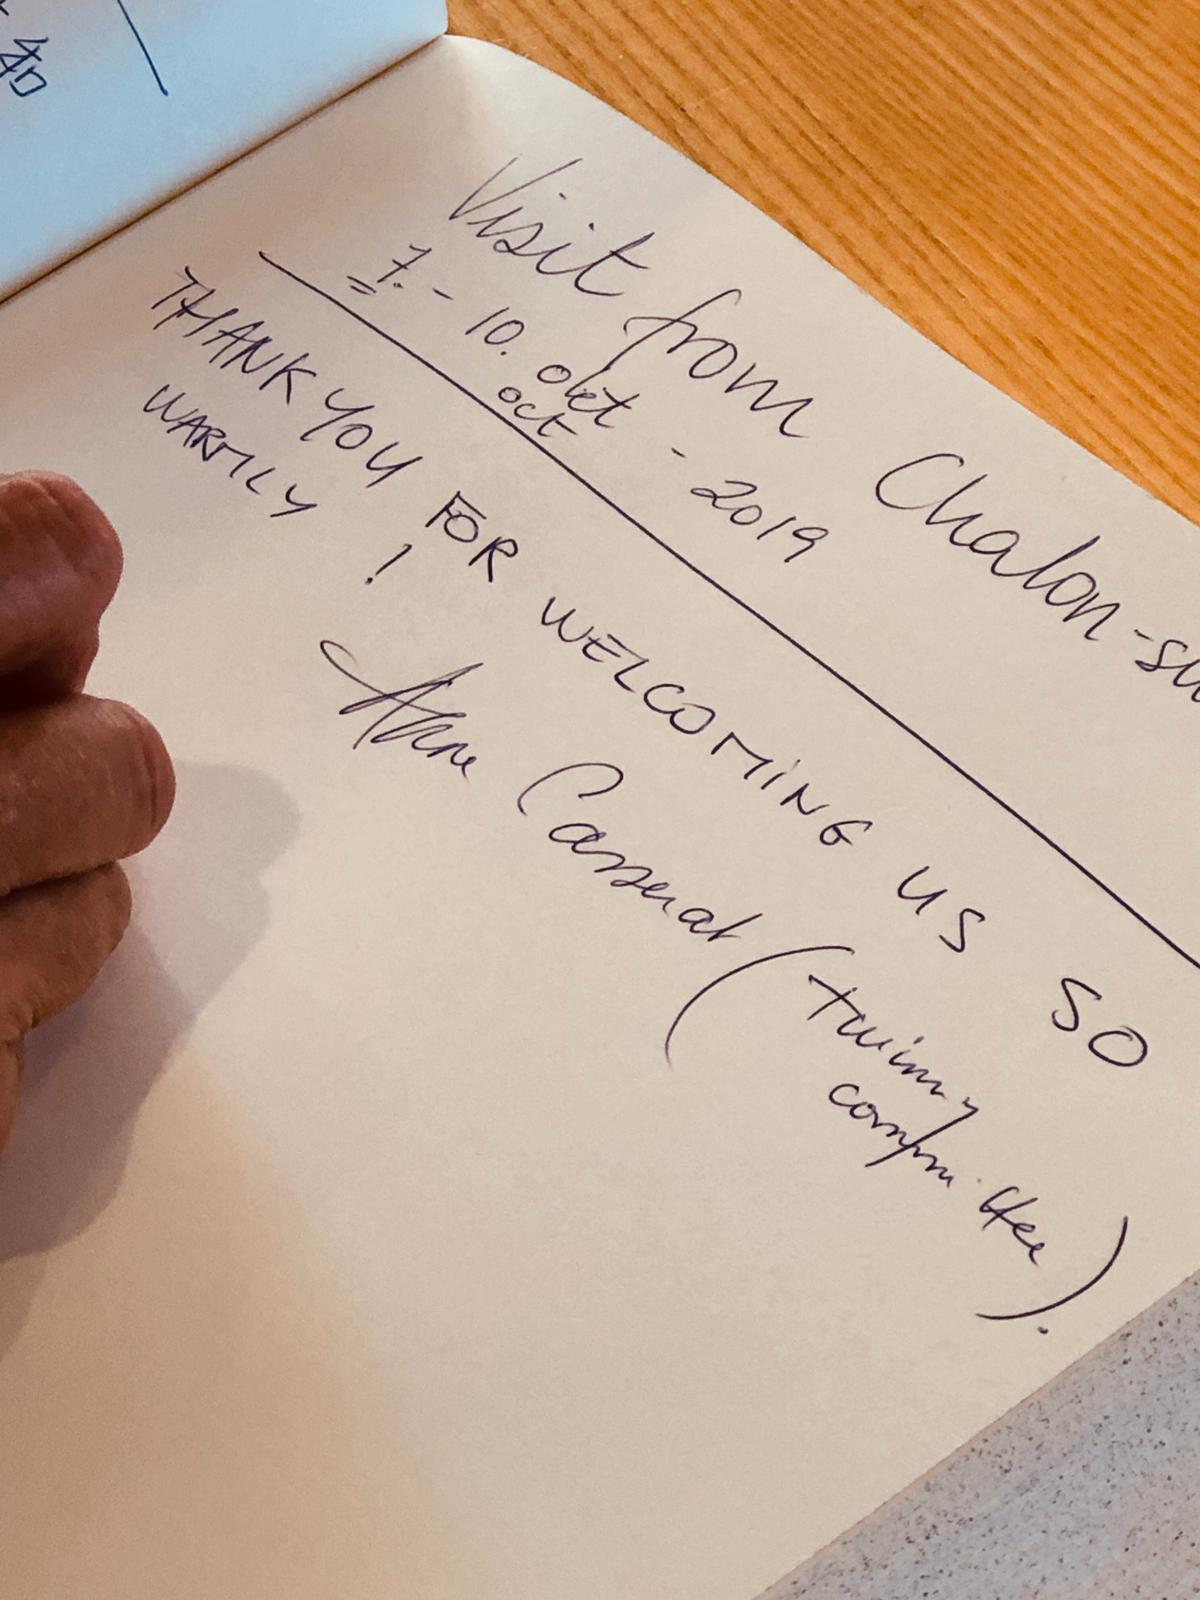 知
Visit from Chalon-su
7. - 10. okt - 2019
oct
THANK YOU FOR WELCOMING US SO
WARMLY !
Anne Casserat (twinning
committee).